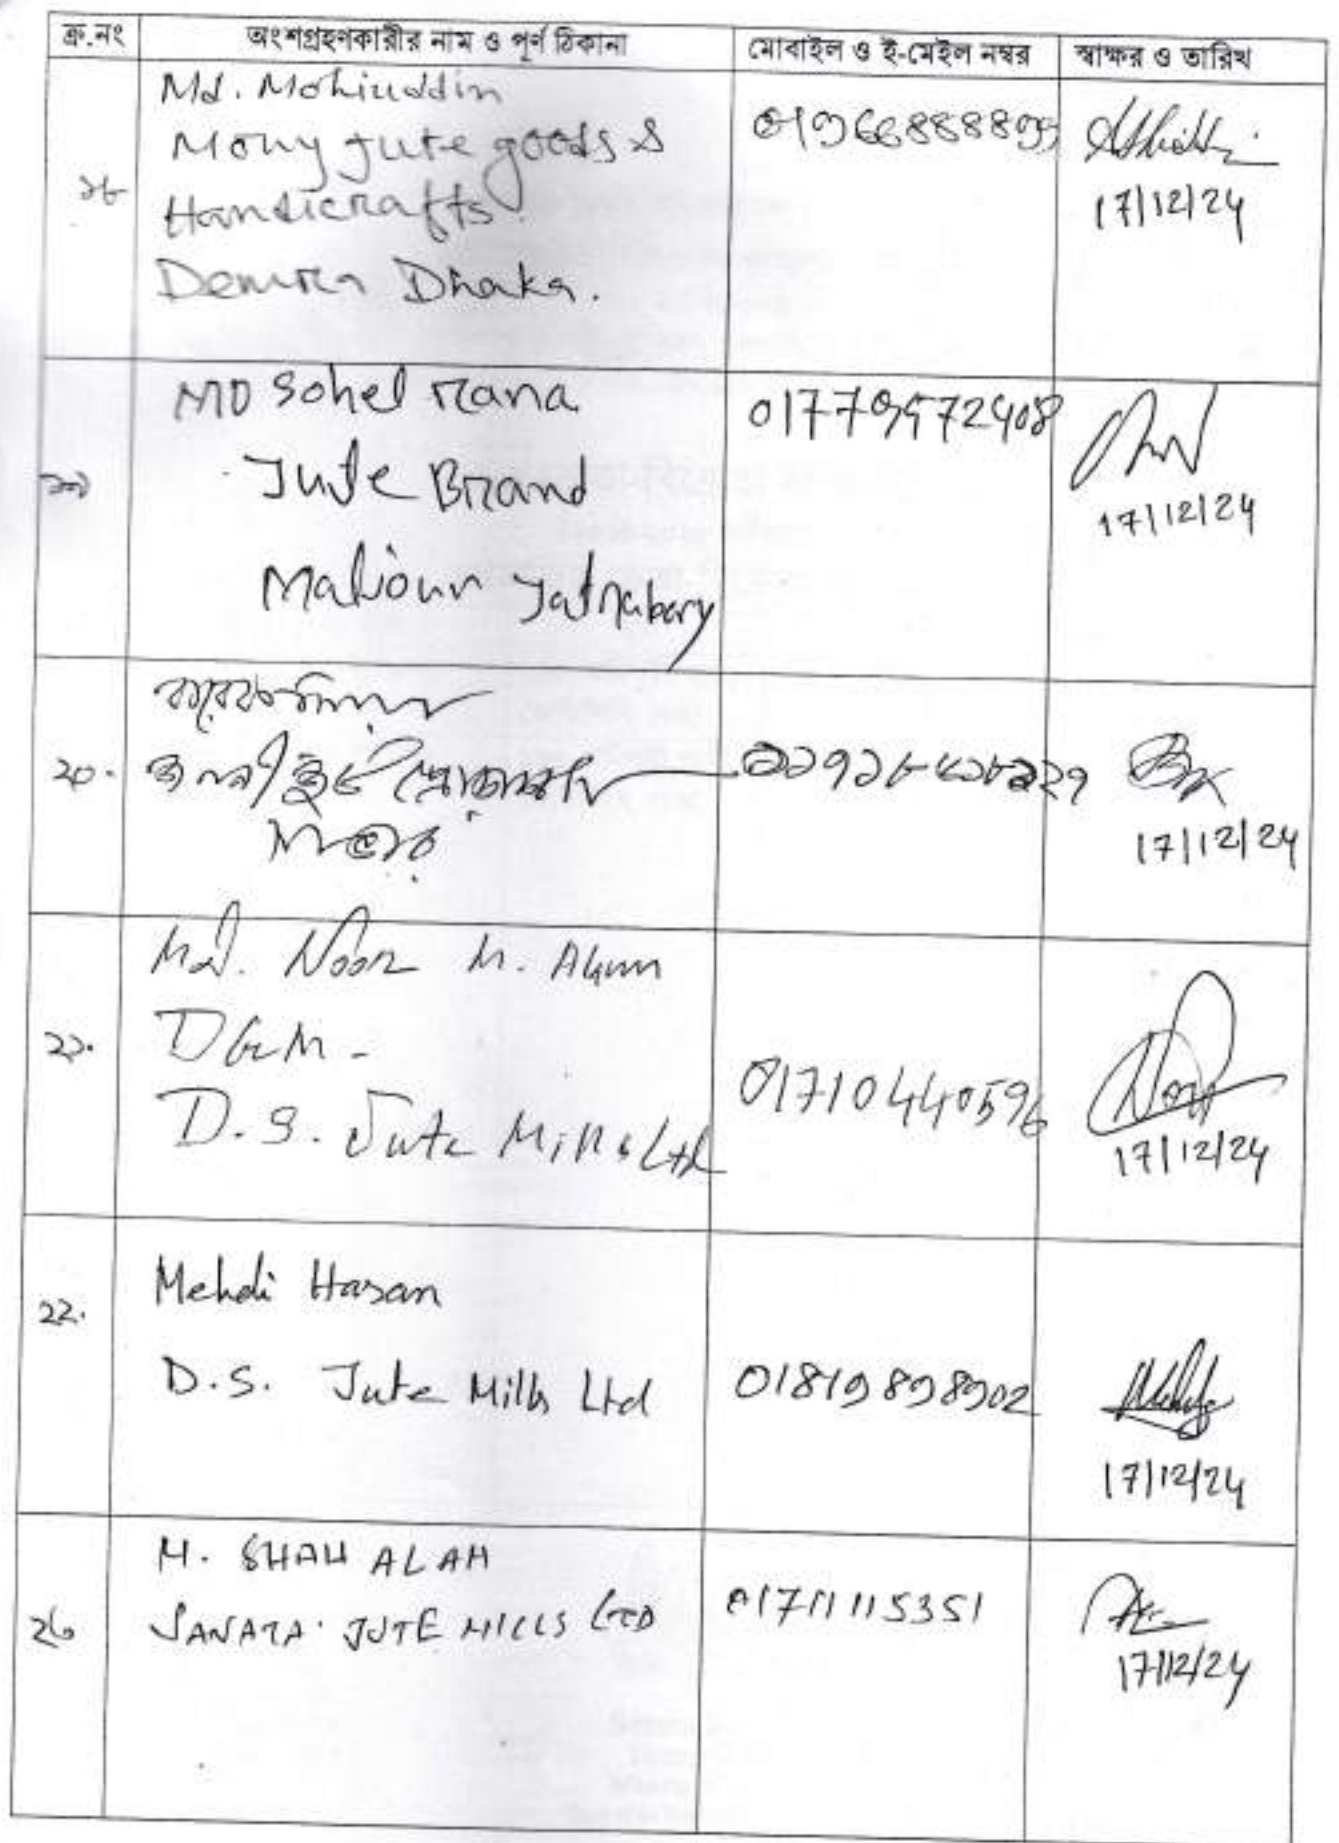 ক্র.নং অংশগ্রহণকারীর নাম ও পূর্ণ ঠিকানা মোবাইল ও ই-মেইল নম্বর স্বাক্ষর ও তারিখ
১৮ Md. Mohiuddin
Mony Jute goods &
Handicrafts.
Demra Dhaka.
17/12/24
১৯ MD Sohel rana
Jute Brand
17/12/24
২০.
জননী জুট
17/12/24
২১. Md. Noor M. Alam
DGM -
D.S. Jute Mills Ltd
01710440596
17/12/24
২২. Mehdi Hasan
D.S. Jute Mills Ltd
17/12/24
২৩ M. SHAH ALAM
JANATA JUTE MILLS LTD
01711115351
17/12/24